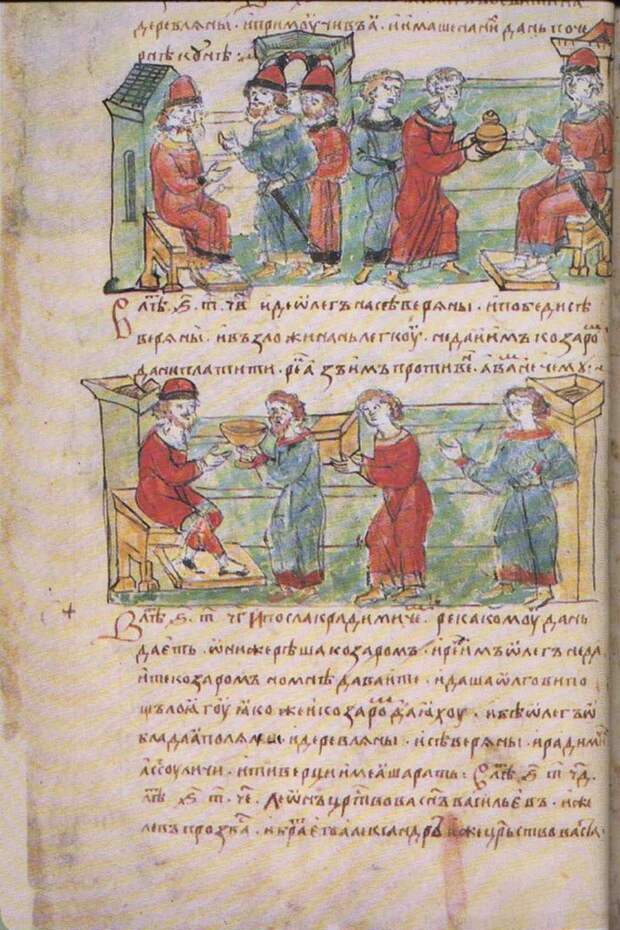 деревляны · и примоучивъ ꙗ · и имаше на ни дань по че
рнѣ кунѣ :
В лѣт҃ · ѕ҃ · т҃ · ч҃в · иде ѡлегъ на сѣверѧны · и победи сѣ
верѧны · и възложи на нь легкоу · не дам имъ козаро
дани платити · рек҃ азъ имъ противе · а вамъ нечему :
В лѣт҃ · ѕ҃ · т҃ · ч҃г · И посла к радимиче · река комоу дань
даете · ѡни же рѣша козаром · и рече имъ ѡлегъ не да
ите козаромъ но мнѣ даваите · и даша ѡлгови по
щьлѧгоу ꙗко же и козаро даꙗхоу · и бѣ ѡлегъ ѡ
бладаꙗ полѧны и деревлѧны · и сѣверѧны · и радими
а с соуличи · и тиверци имеꙗше рать : В лѣт҃ · ѕ҃ · т҃ · ч҃д ·
лѣт҃ · ѕ҃ · т҃ · ч҃е · Леѡнъ црт҃вова сн҃ъ васильевъ · иже
левъ прозва · и бра҃ его александръ иже цр҃ьствоваста